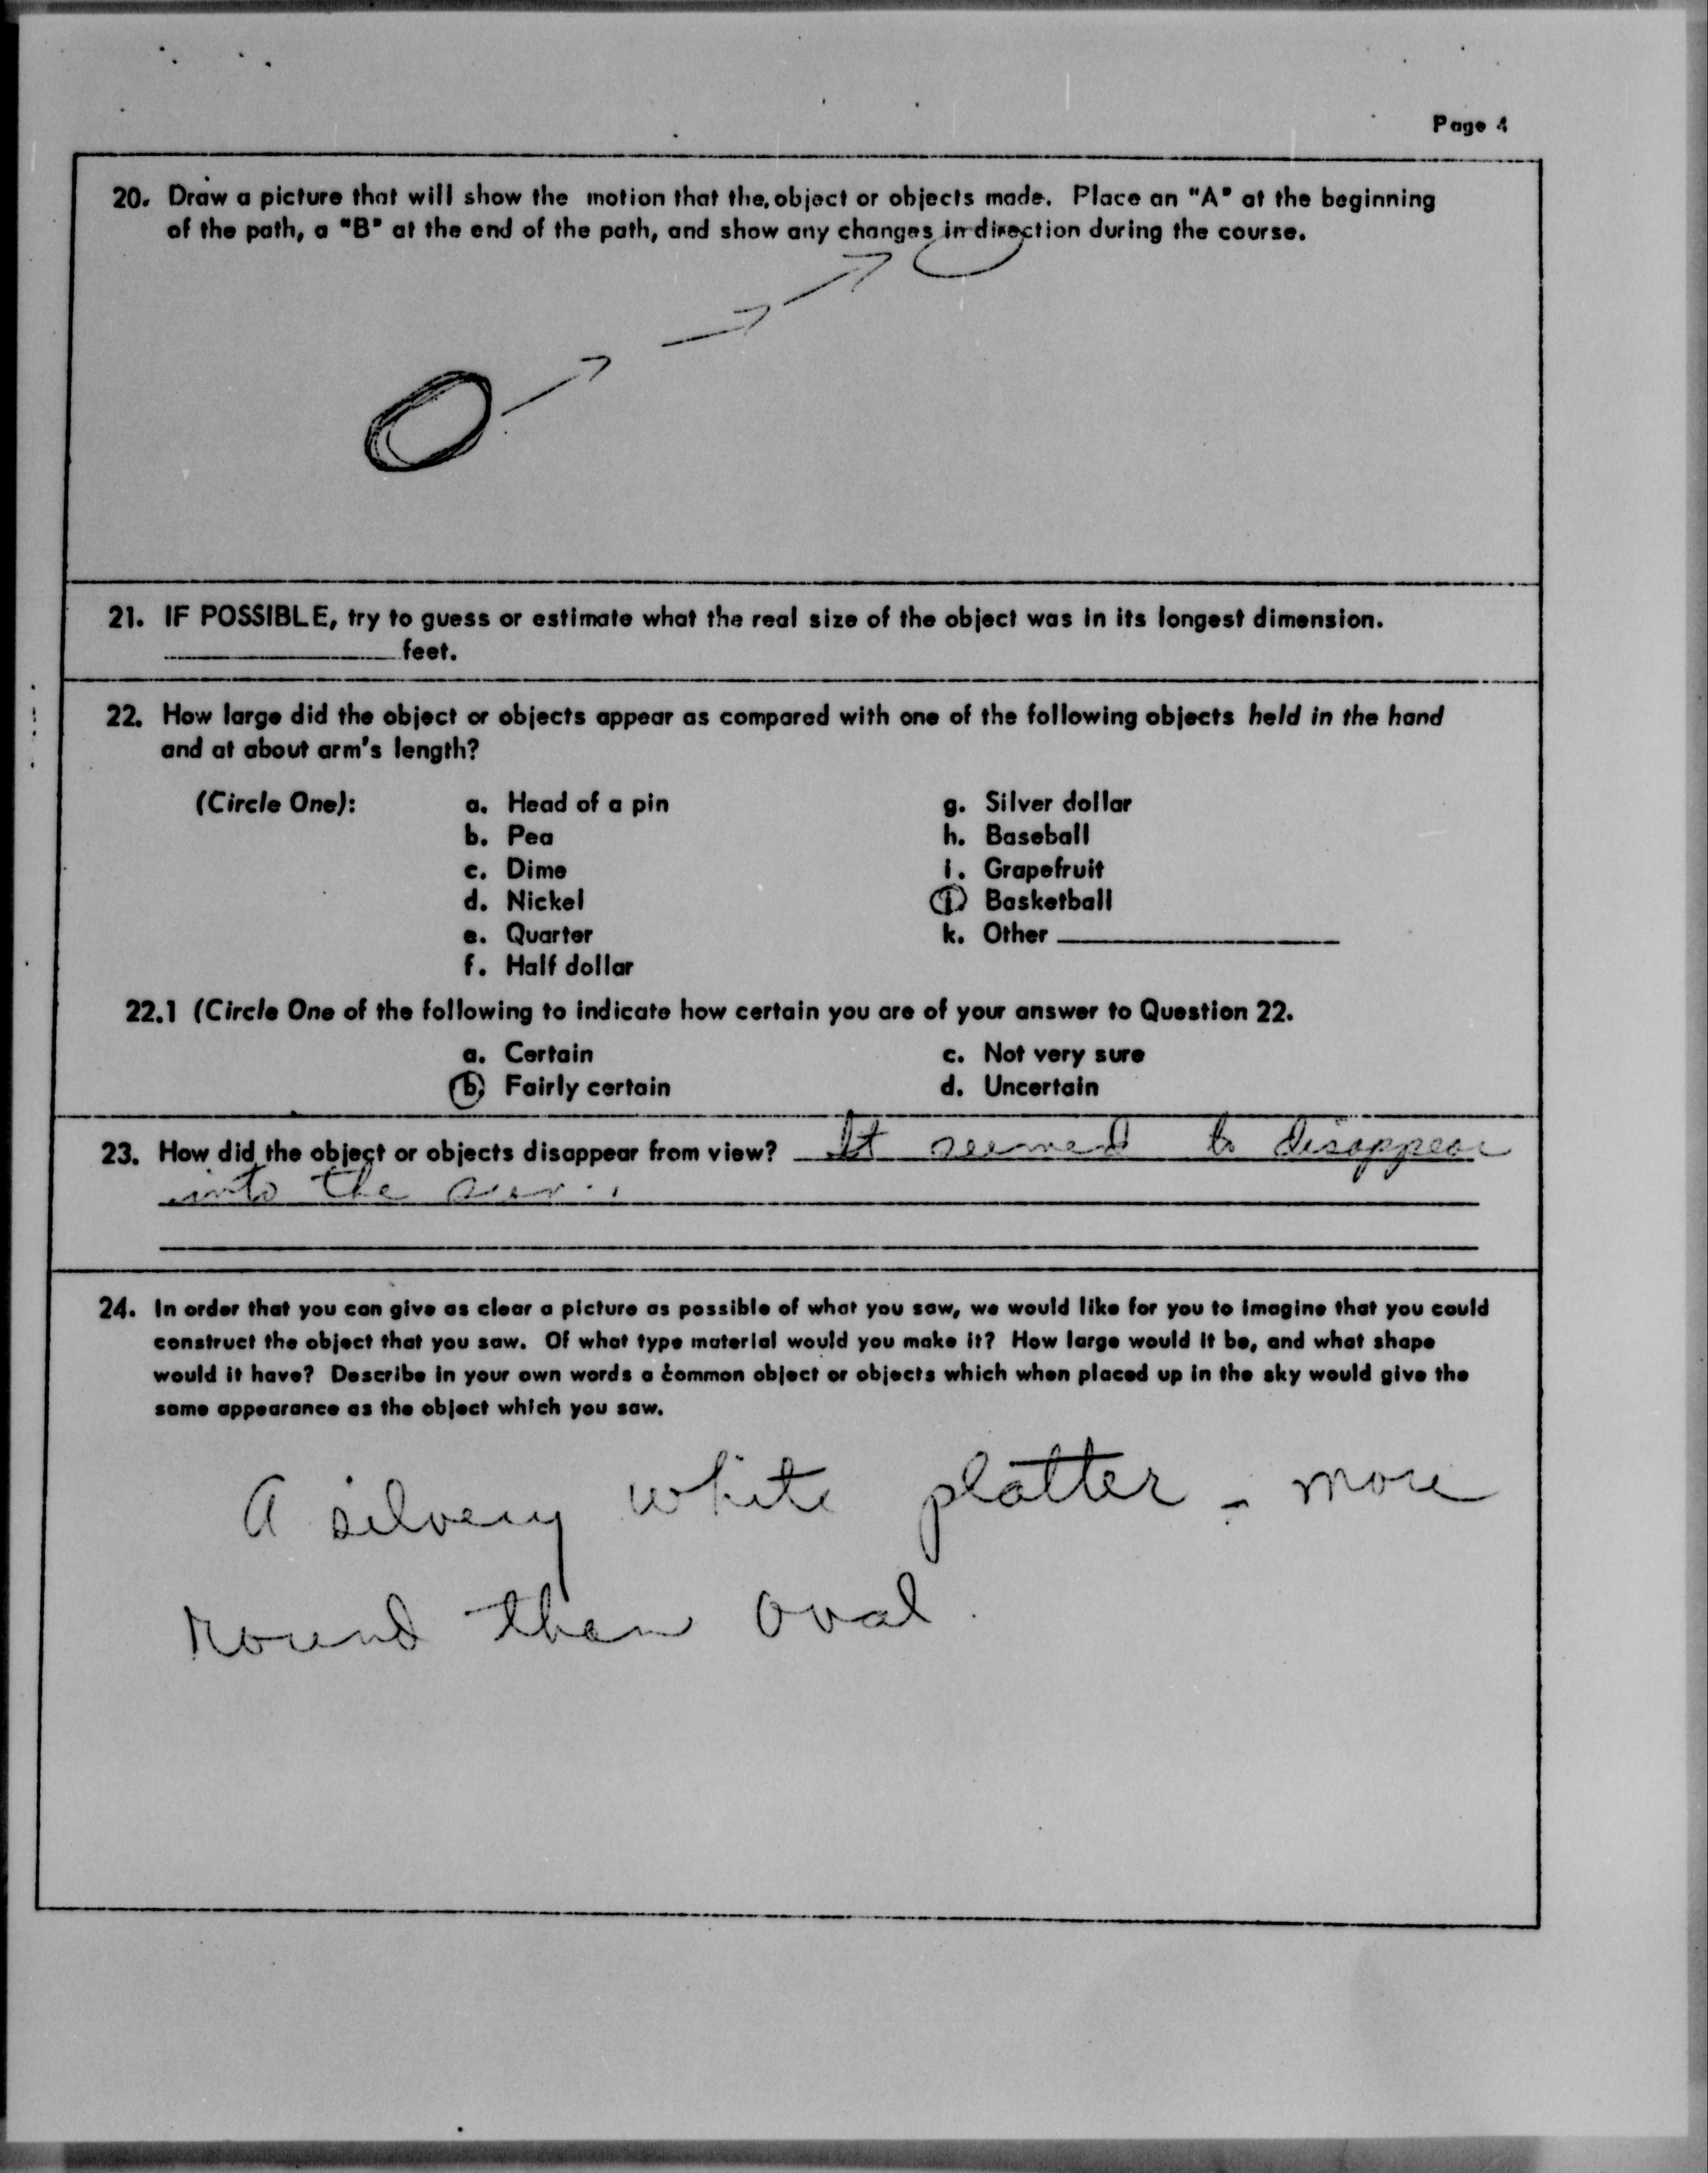 Page 4
20. Draw a picture that will show the motion that the object or objects made. Place an "A" at the beginning
of the path, a "B" at the end of the path, and show any changes in direction during the course.
21. IF POSSIBLE, try to guess or estimate what the real size of the object was in its longest dimension.
____________ feet.
22. How large did the object or objects appear as compared with one of the following objects held in the hand
and at about arm's length?
(Circle One): a. Head of a pin g. Silver dollar
b. Pea h. Baseball
c. Dime i. Grapefruit
d. Nickel j. Basketball
e. Quarter k. Other ____________
f. Half dollar
22.1 (Circle One of the following to indicate how certain you are of your answer to Question 22.
a. Certain c. Not very sure
b. Fairly certain d. Uncertain
23. How did the object or objects disappear from view? It seemed to disappear
into the sun.
24. In order that you can give as clear a picture as possible of what you saw, we would like for you to imagine that you could
construct the object that you saw. Of what type material would you make it? How large would it be, and what shape
would it have? Describe in your own words a common object or objects which when placed up in the sky would give the
same appearance as the object which you saw.
A silvery white platter - more
round than oval.